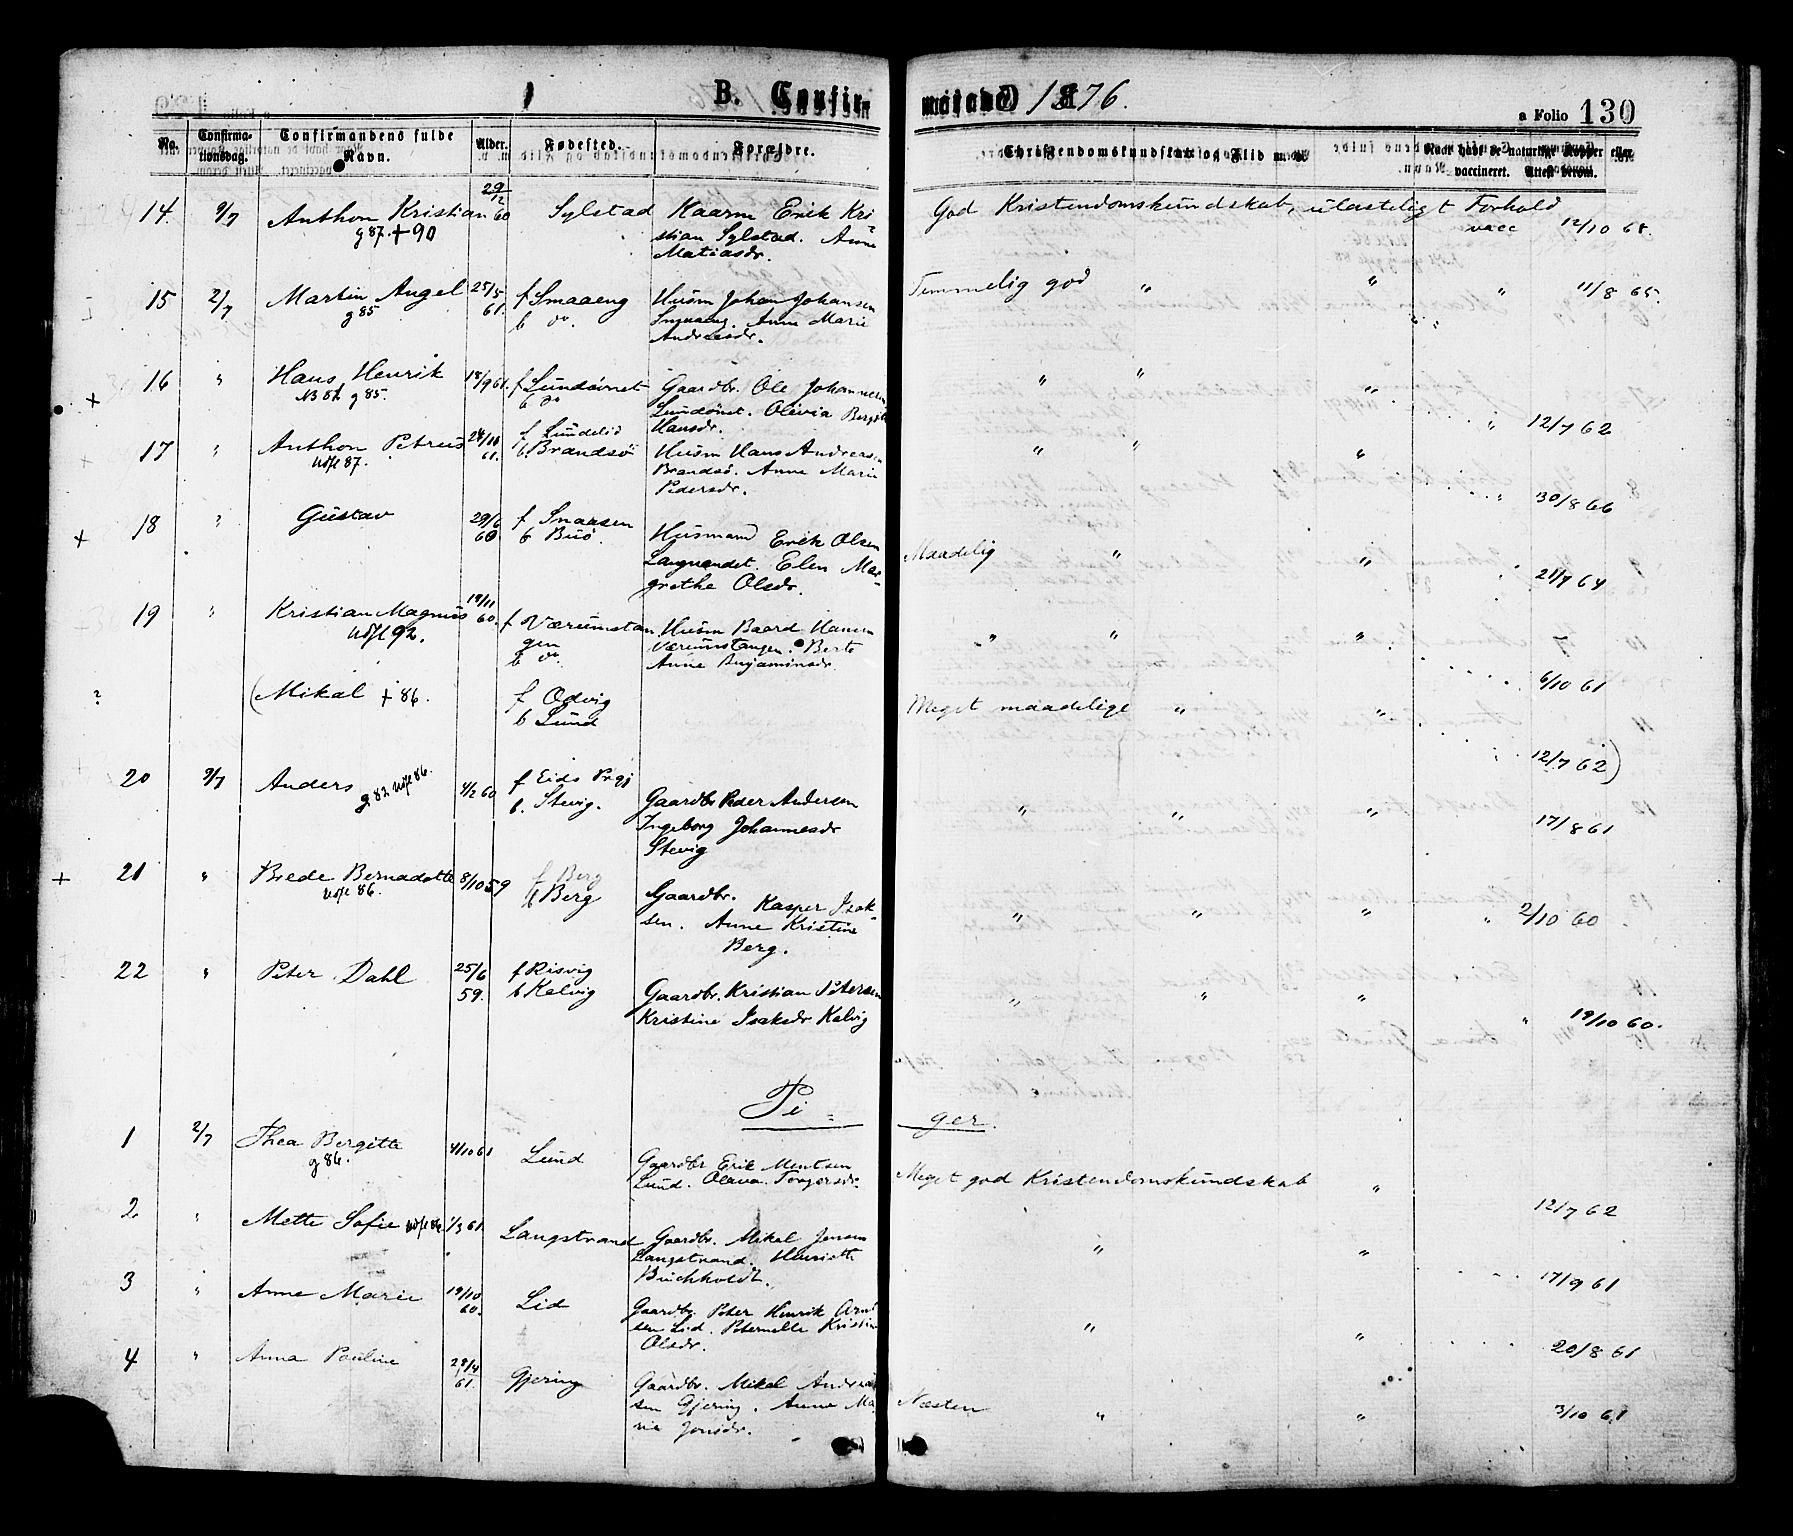 B. Confirmerede 1876.
a Folio 130
No. Confirmationsdag. Confirmandens fulde Navn. Alder. Fødested. Forældre. Christendomskundskab og Flid Naar havt de naturlige Kopper eller vaccineret. Attest derom.
14. 2/7 Anthon Kristian 29/2 60 Sylstad Kaarm Erik Kri-
g 87. + 90 stian Sylstad. Anne
Matiasdr.
God Kristendomskundskab, ulasteligt Forhold vacc 12/10 65.
15 2/7 Martin Angel 25/5 61. f Smaaeng Husm Johan Johansen
g 85 b do. Smaaeng. Anne Marie
Andreasdr.
Temmelig god " " " 11/8 65.
+ 16 " Hans Henrik 18/9 61. f Lundsvnet Gaardbr. Ole Johannesen
g 85. b do Olivia
Hansdr.
" " " " 12/7 62
+ 17 " Anthon Petrus 24/11 61. f Lundelid Husm Hans Andreasen
Udfl 87. b. Brandsø Brandsø. Anne Marie
Pedersdr.
" " " " 30/8 66
+ 18 " Gustav 29/6 60 f Snaasen Husmand Erik Olsen
b Buø. Langnandet. Elen Mar-
grethe Olsdr.
Maadelig " " 21/7 64
19 " Kristian Magnus 19/11 60. f Værumstan Husm Baard Hansen
Udfl 92. gen Værumstangen. Berte
b do. Anne Benjaminsdr.
" " " 6/10 61
? (Mikal + 86. f Odvig
b Lund
Meget maadelige " " " 12/7 62)
20 2/7 Anders 4/2 60 f Eids Prgj Gaardbr Peder Andersen
g 82 Udfl 86. b. Stevig. Ingeborg Johannesdr
Stevig
" " " 17/8 61
+ 21 " Brede Bernadotte 8/10 59 f Berg Gaardbr. Kasper Isak-
Udfl 86. b Berg sen. Anne Kristine
Berg.
" " " " 2/10 60
22 " Peter Dahl 25/6 59. f Risvig Gaardbr. Kristian Petersen
b Kalvig Kristine Isaksdr Kalvig
" " " " 19/10 60.
Pi-ger.
1 2/7 Thea Bergitte 4/10 61 Lund Gaardbr Erik Mentsen
g 86. Lund. Olava Torgersdr.
Meget god Kristendomskundskab " 12/7 62
2 " Mette Sofie Udfl 86 1/3 61. Langstrand Gaardbr. Mikal Jensen
Langstrand. Henriette
Buchholdt.
" " 17/9 61
3 " Anne Marie 19/10 60. Lid Gaardbr. Peter Henrik Arnt
sen Lid. Peternelle Kristin
Olsdr.
" " 20/8 61
4 " Anna Pauline 28/4 61. Gjering Gaardbr. Mikal Andrea
sen Gjering. Anne Ma-
rie Jonsdr.
Næsten " " 3/10 61